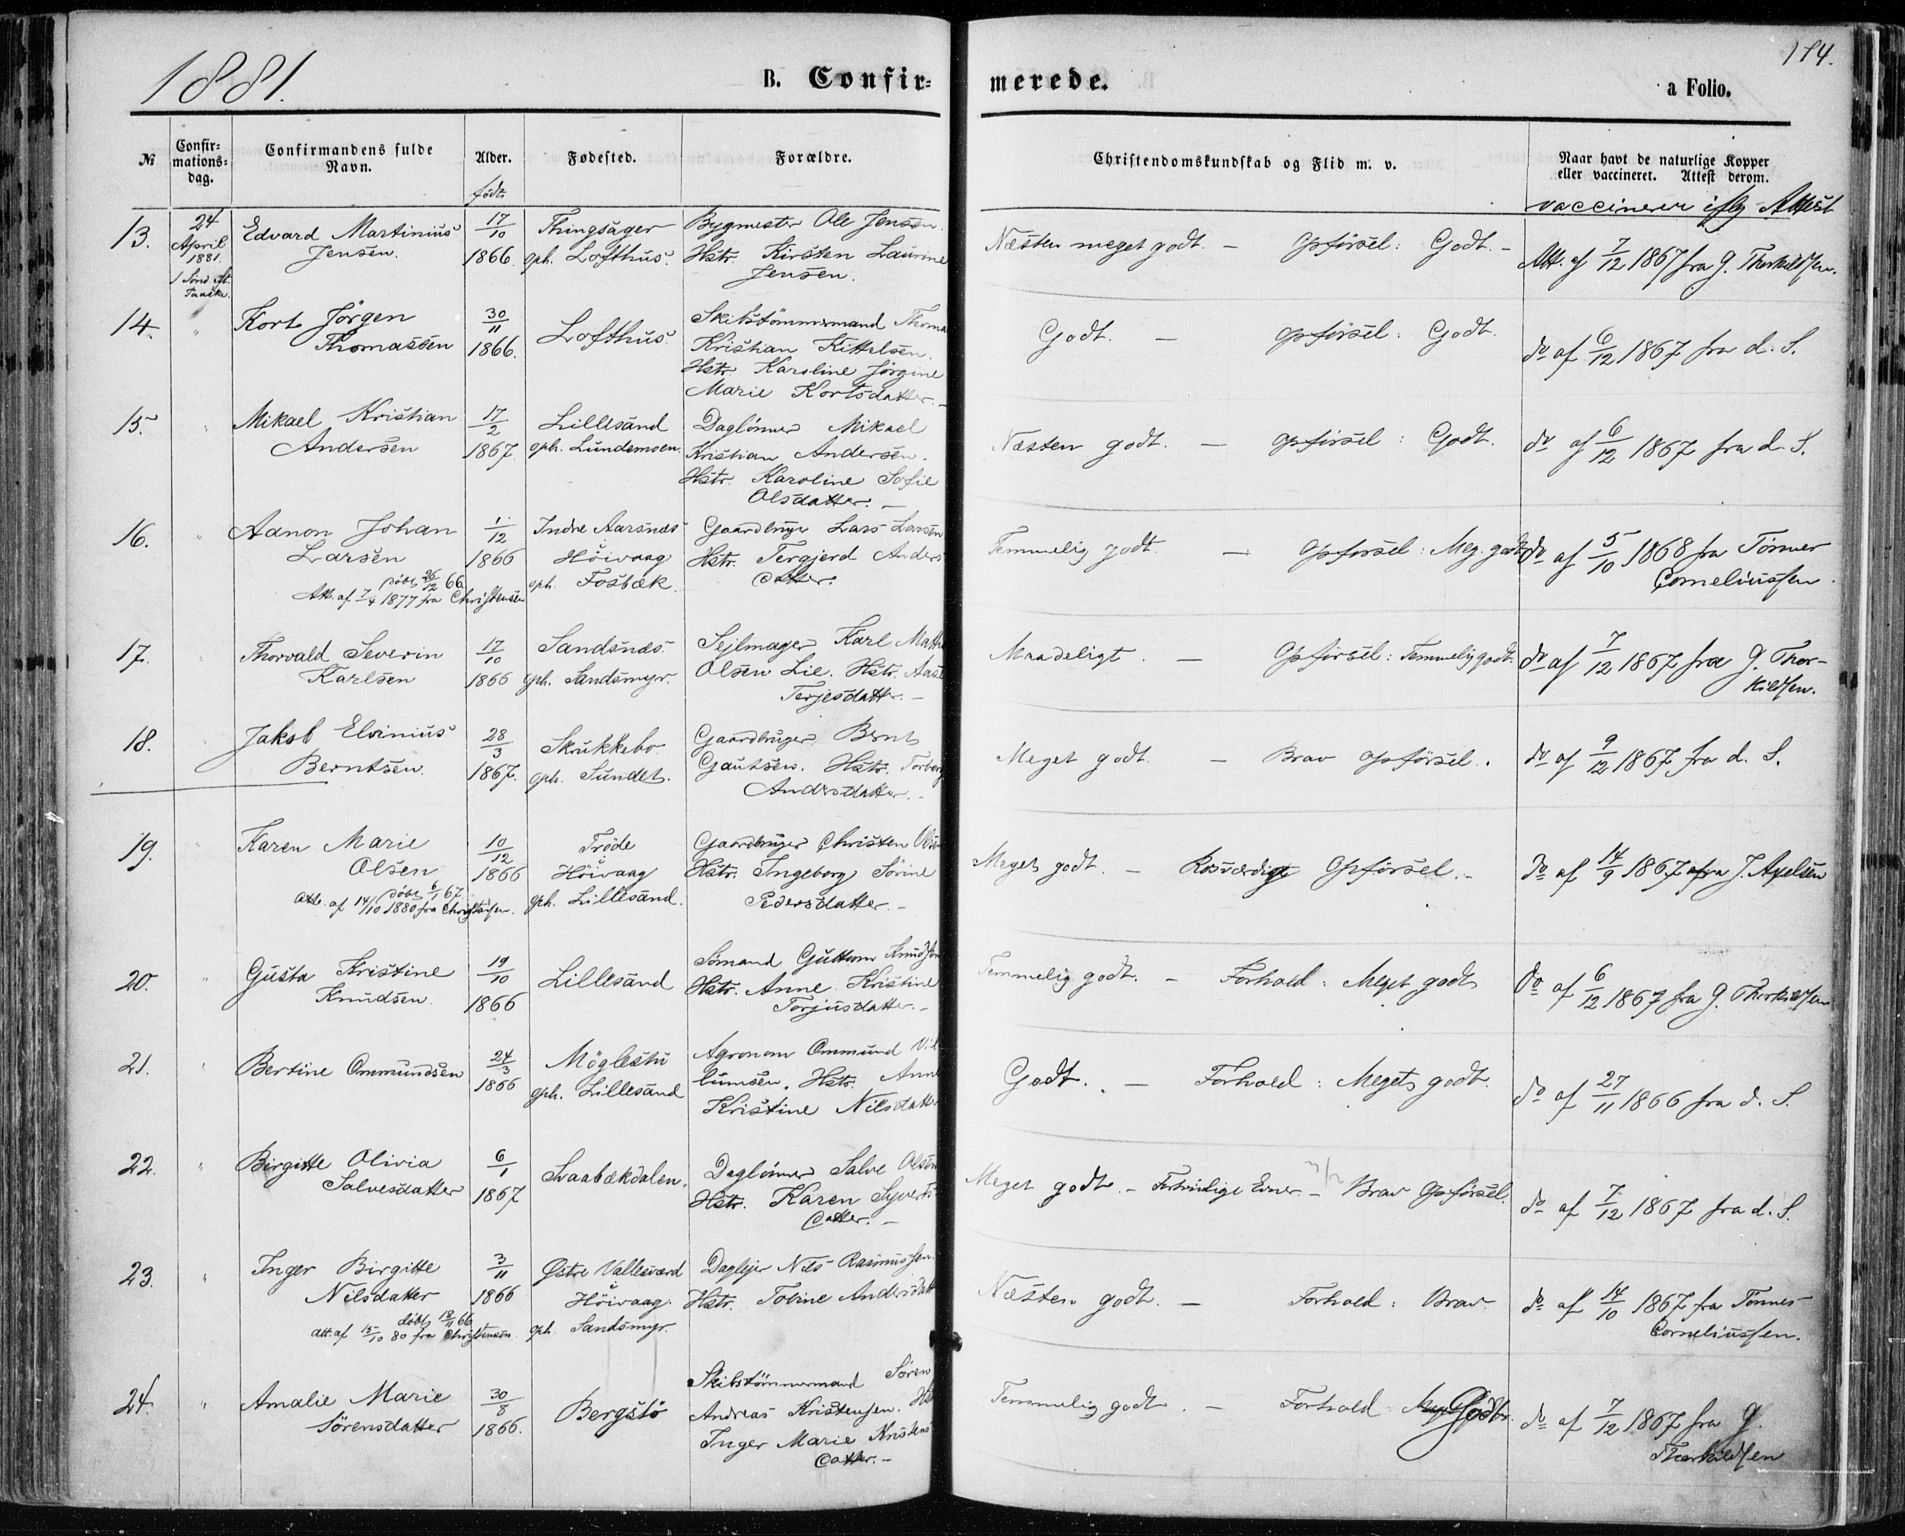 1881.
B. Confir-
merede.
a Folio.
№
Confir-
mations-
dag.
Confirmandens fulde
Navn.
Alder.
født
Fødested.
Forældre.
Christendomskundskab og Flid m. v.
Naar havt de naturlige Kopper
eller vaccineret. Attest derom.
vaccineret iflg Attest
13.
24
April
1881.
Edvard Martinius
Jensen.
17/10
1866.
Thingsager
oph. Lofthus.
Bygmester Ole Jensen.
Hstr. Kirsten Laurine
Jensen.
Næsten meget godt. — Opførsel: Godt. -
Att. af 7/12 1867 fra G. Therkildsen.
14.
"
Kort Jörgen
Thomassen
30/11
1866.
Lofthus.
Skibstömmermand Thoma
Kristian Kittelsen.
Hstr. Karoline Jörgine
Marie Kortsdatter. -
Godt. — Opførsel: Godt.
do af 6/12 1867 fra d. S.
15.
"
Mikael Kristian
Andersen
17/2
1867.
Lillesand
oph. Lundemoen.
Daglönner Mikael
Kristian Andersen.
Hstr. Karoline Sofie
Olsdatter. -
Næsten godt. — Opførsel: Godt.
do af 6/12 1867 fra d. S.
16.
"
Aanon Johan
Larsen
döbt 26/12 66.
Att. af 7/4 1877 fra Christensen
1/12
1866
Indre Aarsnæs
i
Höivaag
oph. Fosbæk.
Gaardbruger Lars Larsen
Hstr. Tergjerd Anders
datter.
Temmelig godt. — Opførsel: Meg. godt
do af 5/10 1868 fra Tönnes
Corneliussen.
17.
"
Thorvald Severin
Karlsen
17/10
1866
Sandsnæs.
oph. Sandsmyr.
Sejlmager Karl Math
Olsen Lie. Hstr. Aase
Terjesdatter. -
Maadeligt. — Opførsel: Temmelig godt.
do af 7/12 1867 fra G. Thor-
kildsen.
18.
"
Jakob Elvinius
Berntsen.
28/3
1867.
Skukkebo
oph. Sundet.
Gaardbruger Bernt
Gautsen. Hstr. Torborg
Andersdatter. -
Meget godt. — Brav Opførsel.
do af 9/12 1867 fra d. S.
19.
"
Karen Marie
Olsen
döbt 6/1 67.
Att. af 14/10 1880 fra Christensen.
10/12
1866
Tröde
i
Höivaag
oph. Lillesand.
Gaardbruger Christen Olsen
Hstr. Ingeborg Sörine
Pedersdatter. -
Meget godt. — Rosværdig Opførsel. -
do af 14/9 1867 fra J. Axelsen
20.
"
Gusta Kristine
Knudsen.
19/10
1866
Lillesand
Sömand Guttorm Knudsen
Hstr. Anne Kristine
Torjusdatter. -
Temmelig godt. — Forhold: Meget godt
do af 6/12 1867 fra G. Therkildsen
21.
"
Bertine Ommundsen
24/3
1866
Möglestu
oph. Lillesand
Agronom Ommund Vil
lumsen. Hstr. Anne
Kristine Nilsdatter
Godt. — Forhold: Meget godt.
do af 27/11 1866 fra d. S.
22.
"
Birgitte Olivia
Salvesdatter
6/1
1867
Svaabækdalen.
Daglönner Salve Olsen
Hstr. Karen Syverts
datter. -
Meget godt. — Fortrinlige Evner. — Brav Opførsel.
do af 7/12 1867 fra d. S.
23.
"
Inger Birgitte
Nilsdatter
döbt 18/11 66
Att. af 15/10 80 fra Christensen.
3/11
1866
Østre Vallesværd
i
Höivaag.
oph. Sandsmyr.
Daglejer Nils Rasmussen.
Hstr. Tobine Andersdatt
Næsten godt. — Forhold: Brav.
do af 14/10 1867 fra Tönnes
Corneliussen.
24.
"
Amalie Marie
Sörensdatter
30/8
1866.
Bergstö
Skibstömmermand Sören
Andreas Kristensen. Hst
Inger Marie Kristens
datter. -
Temmelig godt. — Forhold: Godt.
do af 7/12 1867 fra G.
Therkildsen